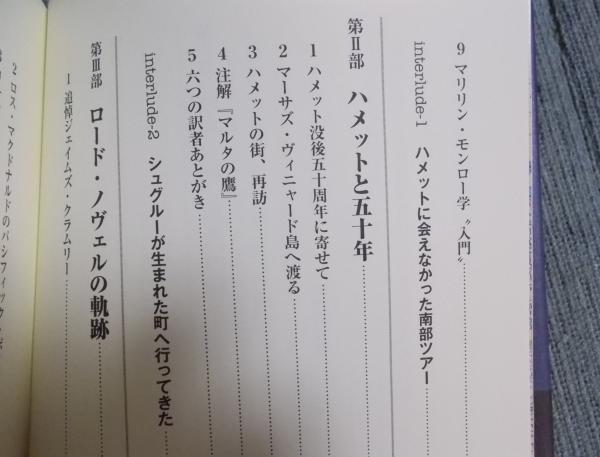 9 マリリン・モンロー学〝入門〟
interlude-1 ハメットに会えなかった南部ツアー
第Ⅱ部 ハメットと五十年
1 ハメット没後五十周年に寄せて
2 マーサズ・ヴィニャード島へ渡る
3 ハメットの街、再訪
4 注解『マルタの鷹』
5 六つの訳者あとがき
interlude-2 シュグルーが生まれた町へ行ってきた
第Ⅲ部 ロード・ノヴェルの軌跡
1 追悼ジェイムズ・クラムリー
2 ロス・マクドナルドのパシフィック・